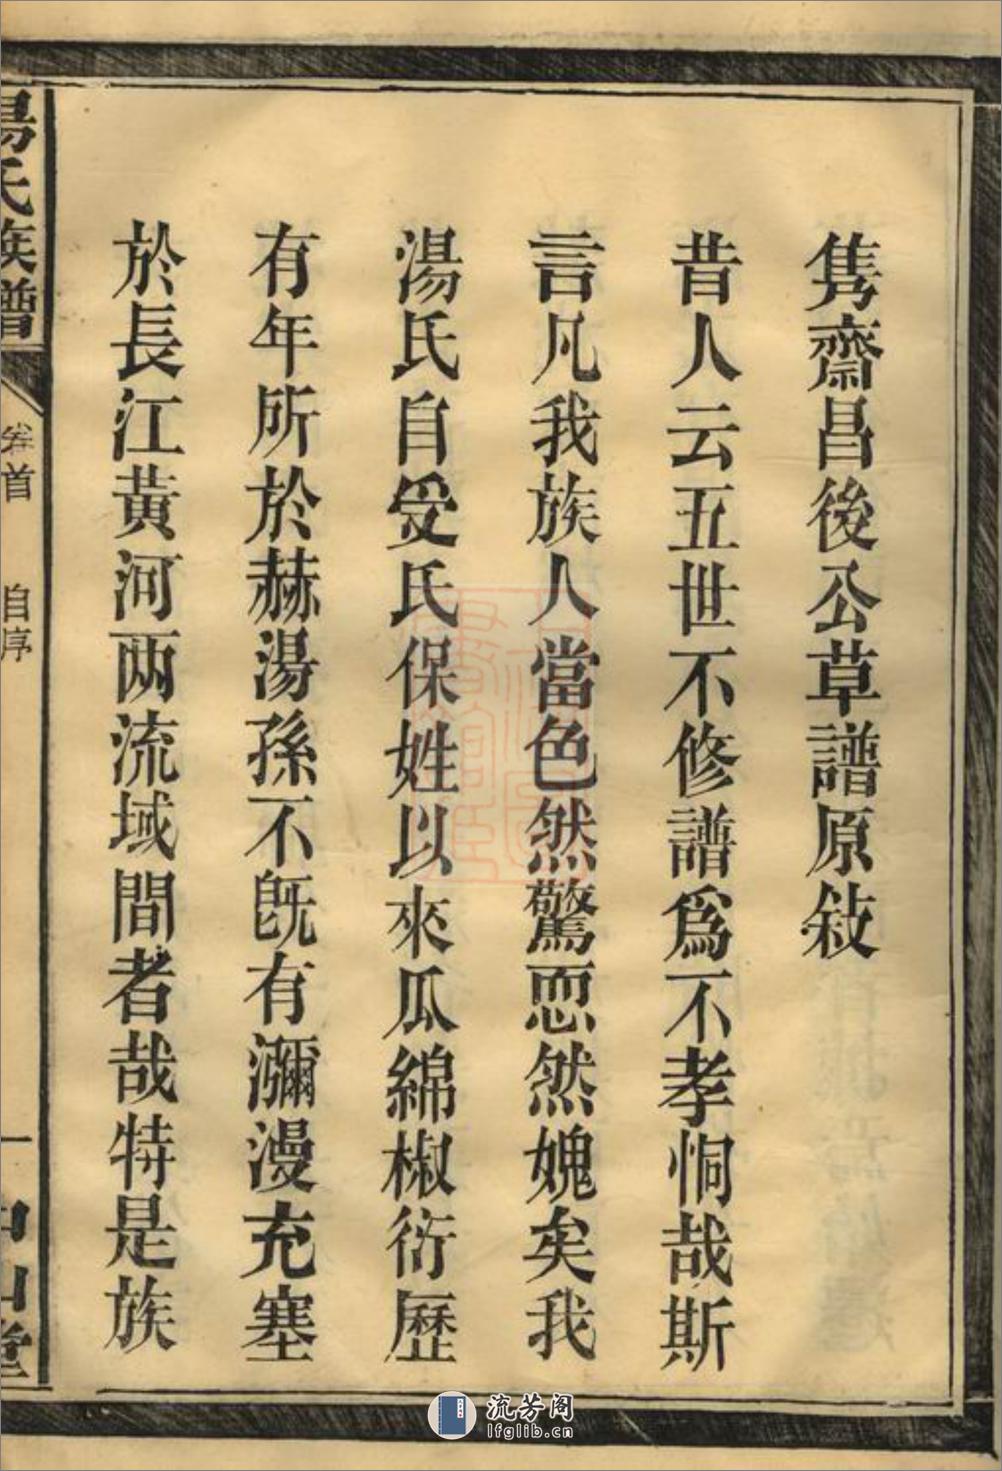 雋齋昌後公草譜原敍
昔人云五世不修譜爲不孝恫哉斯
言凡我族人當色然驚恧然媿矣我
湯氏自受氏保姓以來瓜綿椒衍歷
有年所於赫湯孫不旣有瀰漫充塞
於長江黃河两流域間者哉特是族
湯氏族譜
卷首
自序
一
中山堂
流芳阁
lfglib.cn